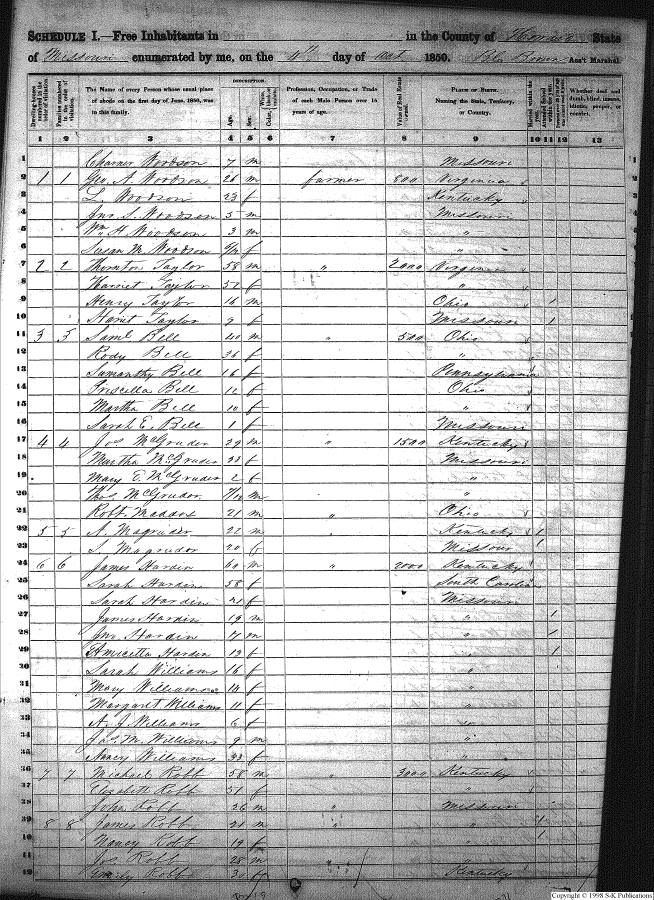 SCHEDULE I.—Free Inhabitants in in the County of State
of Missouri enumerated by me, on the 4th day of Oct 1850. Ass't Marshal.
DESCRIPTION.
Dwelling-houses numbered in the order of visitation.
Families numbered in the order of visitation.
The Name of every Person whose usual place of abode on the first day of June, 1850, was in this family.
Age.
Sex.
Profession, Occupation, or Trade of each Male Person over 15 years of age.
Value of Real Estate owned.
PLACE OF BIRTH. Naming the State, Territory, or Country.
Whether deaf and dumb, blind, insane, idiotic, pauper, or convict.
1 2 3 4 5 6 7 8 9 10 11 12 13
1 Woodson 7 m Missouri
2 1 1 Geo. A Woodson 26 m farmer 800 Virginia
3 L Woodson 23 f Kentucky
4 Jno. S. Woodson 5 m Missouri
5 Wm. H. Woodson 3 m "
6 Susan M. Woodson f "
7 2 2 Thornton Taylor 58 m " 2000 Virginia
8 Harriet Taylor 52 f "
9 Henry Taylor 16 m Ohio 1
10 Hariet Taylor 9 f Missouri 1
11 3 3 Saml. Bell 40 m " 500 Ohio
12 Rody Bell 36 f "
13 Samanthy Bell 16 f Pennsylvania
14 Priscella Bell 12 f Ohio
15 Martha Bell 10 f "
16 Sarah E. Bell 1 f Missouri
17 4 4 Jos McGruder 29 m " 1500 Kentucky
18 Martha McGruder 23 f Missouri
19 Mary E. McGruder 2 f "
20 Thos. McGrudor m "
21 Robt. Maddox 21 m " Ohio
22 5 5 A. Magruder 22 m Kentucky 1
23 S. Magrudor 20 f Missouri 1
24 6 6 James Hardin 60 m " 2000 Kentucky
25 Sarah Hardin 58 f South Carolina
26 Sarah Hardin 21 f Missouri
27 James Hardin 19 m " 1
28 Jno. Hardin 17 m " 1
29 Hardin 13 f " 1
30 Sarah Williams 16 f "
31 Mary Williams 14 f "
32 Margaret Williams 11 f "
33 A. J Williams 6 f "
34 Jas. M. Williams 9 m "
35 Nancy Williams 33 f "
36 7 7 Michael Robb 58 m " 3000 Kentucky
37 Elizabeth Robb 51 f "
38 John Robb 26 m " Missouri
39 8 8 James Robb 21 m " " 1
40 Nancy Robb 19 f " 1
41 Jos. Robb 28 m " "
42 Emily Robb 30 f Kentucky
Copyright © 1998 S-K Publications